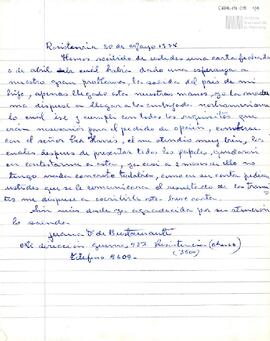 Resistencia 20 de Mayo 1978
Hemos recibido de ustedes una carta fechada
6 de abril la cual había dado una esperanza a
nuestro gran problema, la salida del país de mi
hijo, apenas llegado esta nuestras manos, yo la madre
me dispuse en llegar a la embajada norteamericana
lo cual fue y cumplí con todos los requisitos que
eran necesarios para el pedido de opción,
con el señor Tex Harris, el me atendió muy bien, los
cuales después de presentar todos los papeles, quedaron
en contestarme a esto, ya casi a 2 meses de ello no
tengo nada concreto todabía, como en su carta pedían
ustedes que se le comunicara el resultado de los trámites
me dispuse a escribirles esta breve carta.
Sin más desde ya agradecida por su atención
lo saluda
Juana V de Bustamante
Mi dirección Guemes 957 Resistencia (Chaco)
(3500)
Teléfono 5609